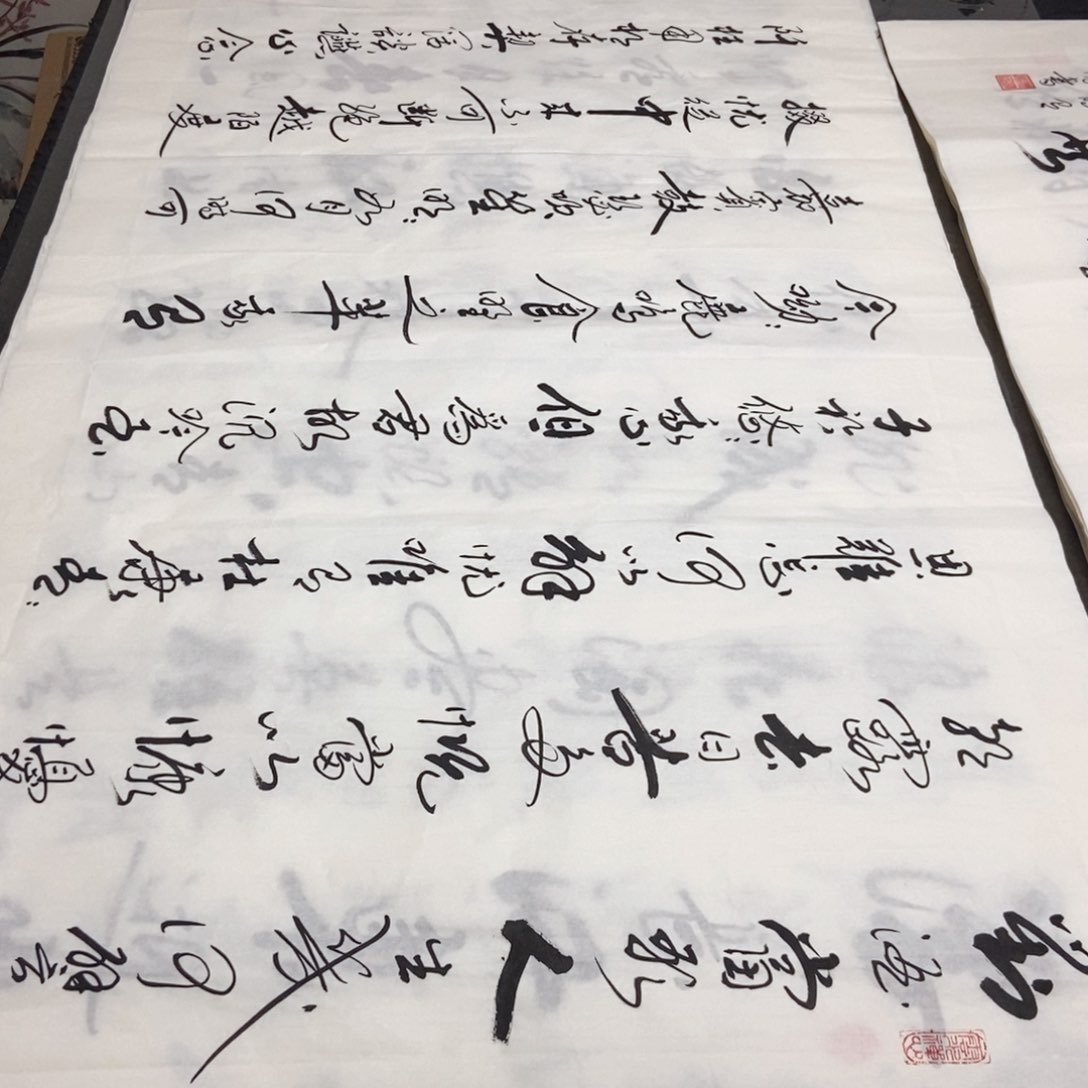 對酒當歌人生幾何譬
朝露去日苦多慨當以慷憂
思難忘何以解憂唯有杜康青〻
子衿悠〻我心但為君故沉吟至
今呦〻鹿鳴食野之苹我有
嘉賓鼓瑟吹笙明〻如月何時可
掇憂從中來不可斷絕越陌度
阡枉用相存契闊談讌心念